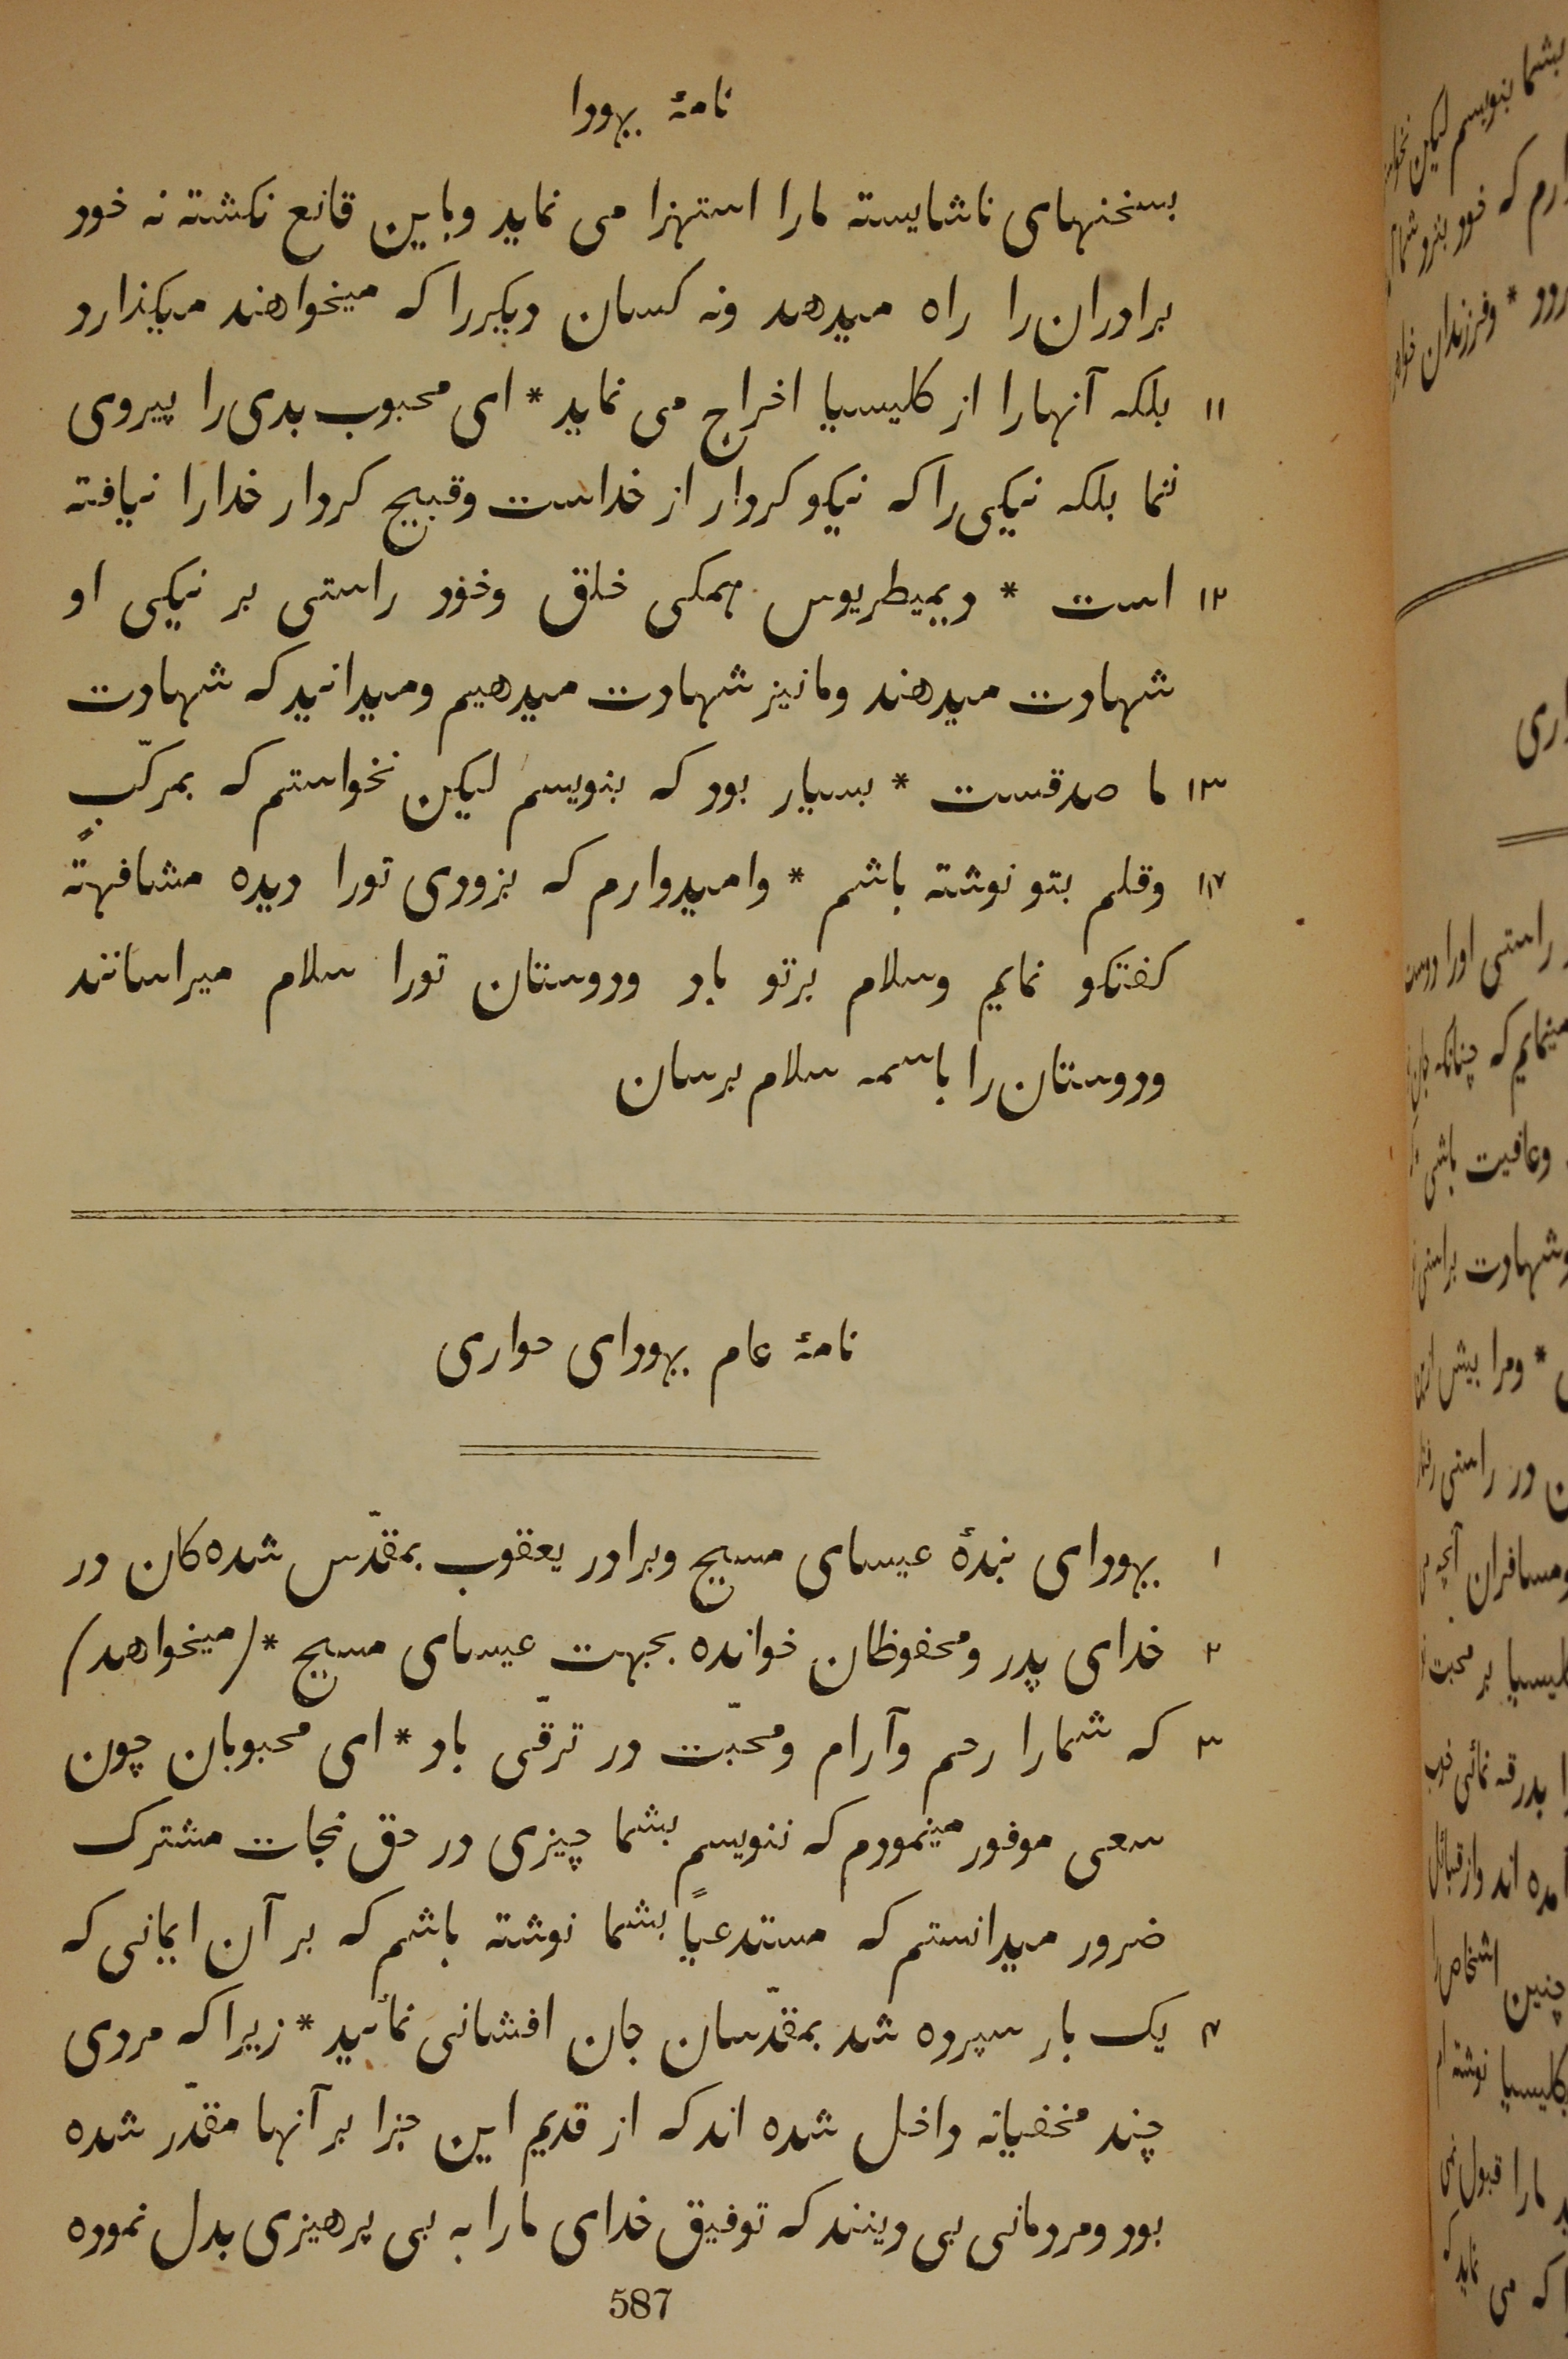 نامهٔ یهودا
بسخنهای ناشایسته مارا استهزا می نماید وباین قانع نکشته نه خود
برادران‌را راه میدهد ونه کسان دیکررا که میخواهند میکذارد
۱۱ بلکه آنهارا از کلیسیا اخراج می نماید * ای محبوب بدی‌را پیروی
ننما بلکه نیکی‌را که نیکو کردار از خداست وقبیح کردار خدارا نیافته
۱۲ است * دیمیطریوس همکی خلق وخود راستی بر نیکی او
شهادت میدهند ومانیز شهادت میدهیم ومیدانید که شهادت
۱۳ ما صدقست * بسیار بود که بنویسم لیکن نخواستم که بمرکّبٍ
۱۴ وقلم بتو نوشته باشم * وامیدوارم که بزودی تورا دیده مشافهته
کفتکو نمایم وسلام برتو باد ودوستان تورا سلام میراسانند
ودوستان‌را باسمه سلام برسان
نامهٔ عام یهودای حواری
۱ یهودای بندهٔ عیسای مسیح وبرادر یعقوب بمقدّس شده‌کان در
۲ خدای پدر ومحفوظان خوانده بجهت عیسای مسیح * (میخواهد)
۳ که شمارا رحم وآرام ومحبّت در ترقّی باد * ای محبوبان چون
سعی موفور مینمودم که بنویسم بشما چیزی در حق نجات مشترک
ضرور میدانستم که مستدعیاً بشما نوشته باشم که بر آن ایمانی که
۴ یک بار سپرده شد بمقدّسان جان افشانی نمائید * زیرا که مردی
چند مخفیانه داخل شده اند که از قدیم این جزا بر آنها مقدّر شده
بود ومردمانی بی دینند که توفیق خدای مارا به بی پرهیزی بدل نموده
587